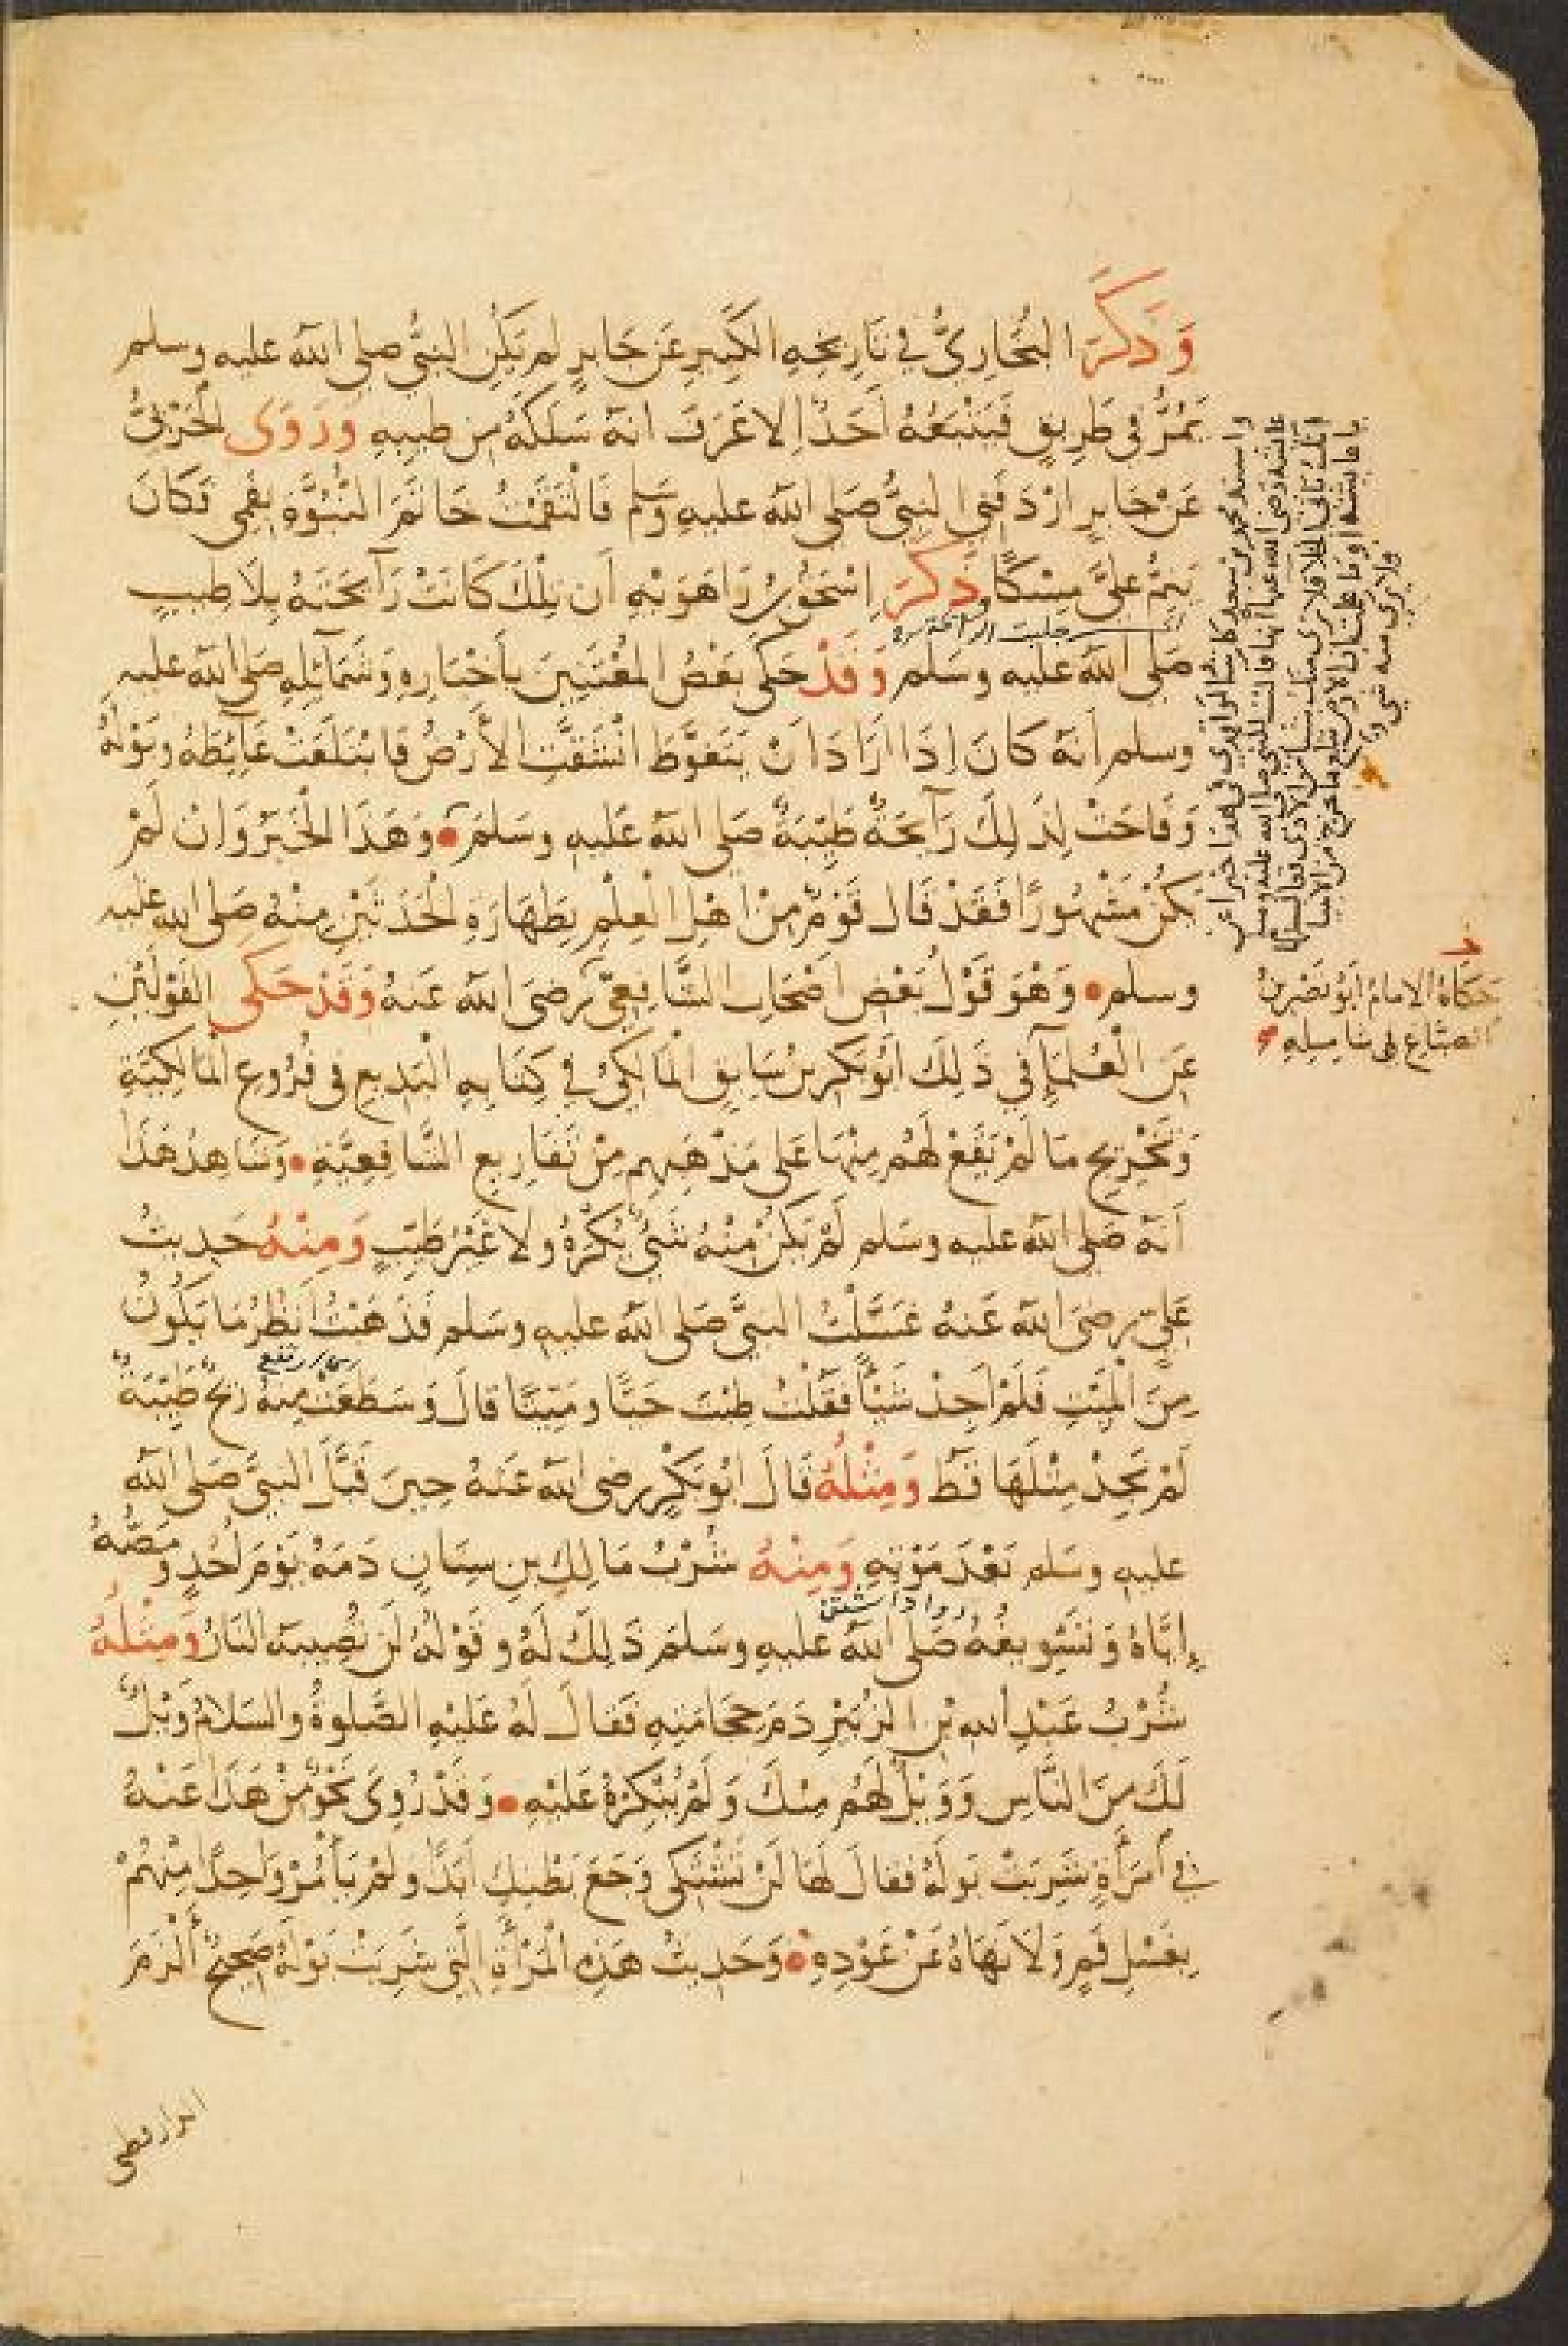 وَذَكَرَ البُخَارِيُّ في تَارِيخِهِ الكَبِيرِ عَن جَابِرٍ لم يَكُنِ النبيُّ صلى الله عليه وسلم
يَمُرُّ في طَرِيقٍ فَيَتْبَعُهُ أَحَدٌ إلا عَرَفَ انهُ سَلَكَهُ مِن طيبِهِ وَرَوَى الْحَرْبِيُّ
عَنْ جَابِرٍ ارْدَفَنِي النبيُّ صَلى الله عليهِ وسلم فَالْتَقَمْتُ خَاتَمَ النُّبُوَّةِ بِفَمِي فَكَانَ
يَنِمُّ عَلَيَّ مِسْكًا وذَكَرَ اِسْحَقُ بنُ رَاهَوَيْهِ أن تِلْكَ كَانَتْ رَائحَتَهُ بِلَا طِيبٍ
صَلى الله عليه وسَلم وَقَدْ حَكَى بَعْضُ المُعْتَنِينَ بأَخْبَارِهِ وَشَمَائِلِهِ صَلى الله عليه
وسلم أنهُ كَانَ إِذَا ارَادَ انْ يَتَغَوَّطَ انْشَقَّتِ الأَرْضُ فابْتَلَعَتْ غَائِطَهُ وبَوْلَهُ
وَفَاحَتْ لِذَلِكَ رَائحَةٌ طَيِّبَةٌ صَلى الله عَليهِ وسَلمَ وَهَذَا الْخَبَرُ وَانْ لَمْ
يَكُنْ مَشْهُورًا فَقَدْ قَال قَوْمٌ مِنْ اهْلِ الْعِلْمِ بِطَهَارَةِ الْحَدَثَيْنِ مِنْهُ صَلى الله عليه
وسلم وَهْوَ قَوْلُ بَعْضِ اصْحَابِ الشَّافِعِيِّ رَضىَ الله عَنهُ وَقَدْ حَكَى القَوْلَيْنِ
عَنِ الْعُلَمَاءِ فى ذَلِكَ ابُو بَكْرِ بنُ سَابِقٍ الْمَالِكيُّ في كِتَابِهِ الْبَدِيعِ فى فُرُوعِ الْمَالِكِيَّةِ
وَتَخْرِيجِ مَا لَمْ يَقَعْ لَهُمْ مِنْهَا عَلى مَذْهَبِهِم مِنْ تَفَارِيعِ الشَّافِعِيَّةِ وَشَاهِدُ هَذَا
أنهُ صَلى الله عليه وسَلم لَمْ يَكُنْ مِنْهُ شَيْءٌ يُكْرَهُ ولا غَيْرُ طَيِّبٍ وَمِنْهُ حَدِيثُ
عَلِيٍّ رضىَ الله عَنهُ غَسَّلْتُ النبيَّ صَلى الله عليهِ وسَلم فَذَهَبْتُ انظُرُ مَا يَكُونُ
مِنَ الْمَيّتِ فَلَمْ اَجِدْ شَيْأً فَقُلْتُ طِبْتَ حَيًّا ومَيّتًا قَالَ وَسَطَعَتْ مِنهُ رِيحٌ طَيِّبَةٌ
لَمْ نَجِدْ مِثْلَهَا قَطُّ وَمِثْلُهُ قَالَ ابُو بَكْرٍ رضى الله عَنهُ حِينَ قَبَّلَ النبيَّ صَلى الله
عليهِ وسَلم بَعْدَ مَوْتِهِ وَمِنْهُ شُرْبُ مَالِكِ بنِ سِنَانٍ دَمَهُ يَوْمَ اُحُدٍ وَمَصُّهُ
إيَّاهُ وَتَسْوِيغُهُ صَلى الله عليهِ وسَلمَ ذَلِكَ لَهُ وقَوْلُهُ لَن تُصِيبَهُ النارُ وَمِثْلُهُ
شُرْبُ عَبْدِ اللهِ بْنِ الزُبَيْرِ دَمَ حِجَامَتِهِ فَقالَ لَهُ عَلَيْهِ الصَّلوةُ والسَلامُ وَيْلٌ
لَكَ مِنَ النَّاسِ وَوَيْلٌ لَهُم مِنكَ وَلَمْ يُنْكِرْهُ عَلَيْهِ وَقَدْ رُوِىَ نَحْوٌ مِنْ هَذَا عَنهُ
فى اَمْرَأَةٍ شَرِبَتْ بَولَهُ فقالَ لَهَا لَنْ تَشْتَكِي وَجَعَ بَطْنِكِ ابَدًا ولمْ يَأْمُرْ وَاحِدًا مِنْهُمْ
بِغَسْلِ فَمٍ وَلَا نَهَاهُ عَنْ عَوْدِهِ وَحَدِيثُ هَذِهِ الْمَرْأَةِ الَّتِي شَرِبَتْ بَوْلَهُ صَحِيحٌ أَلْزَمَ
الدارقطني
حَكَاهُ الامامُ ابُو نَصْرِ بنُ
الصبّاغ فى شامِلِهِ